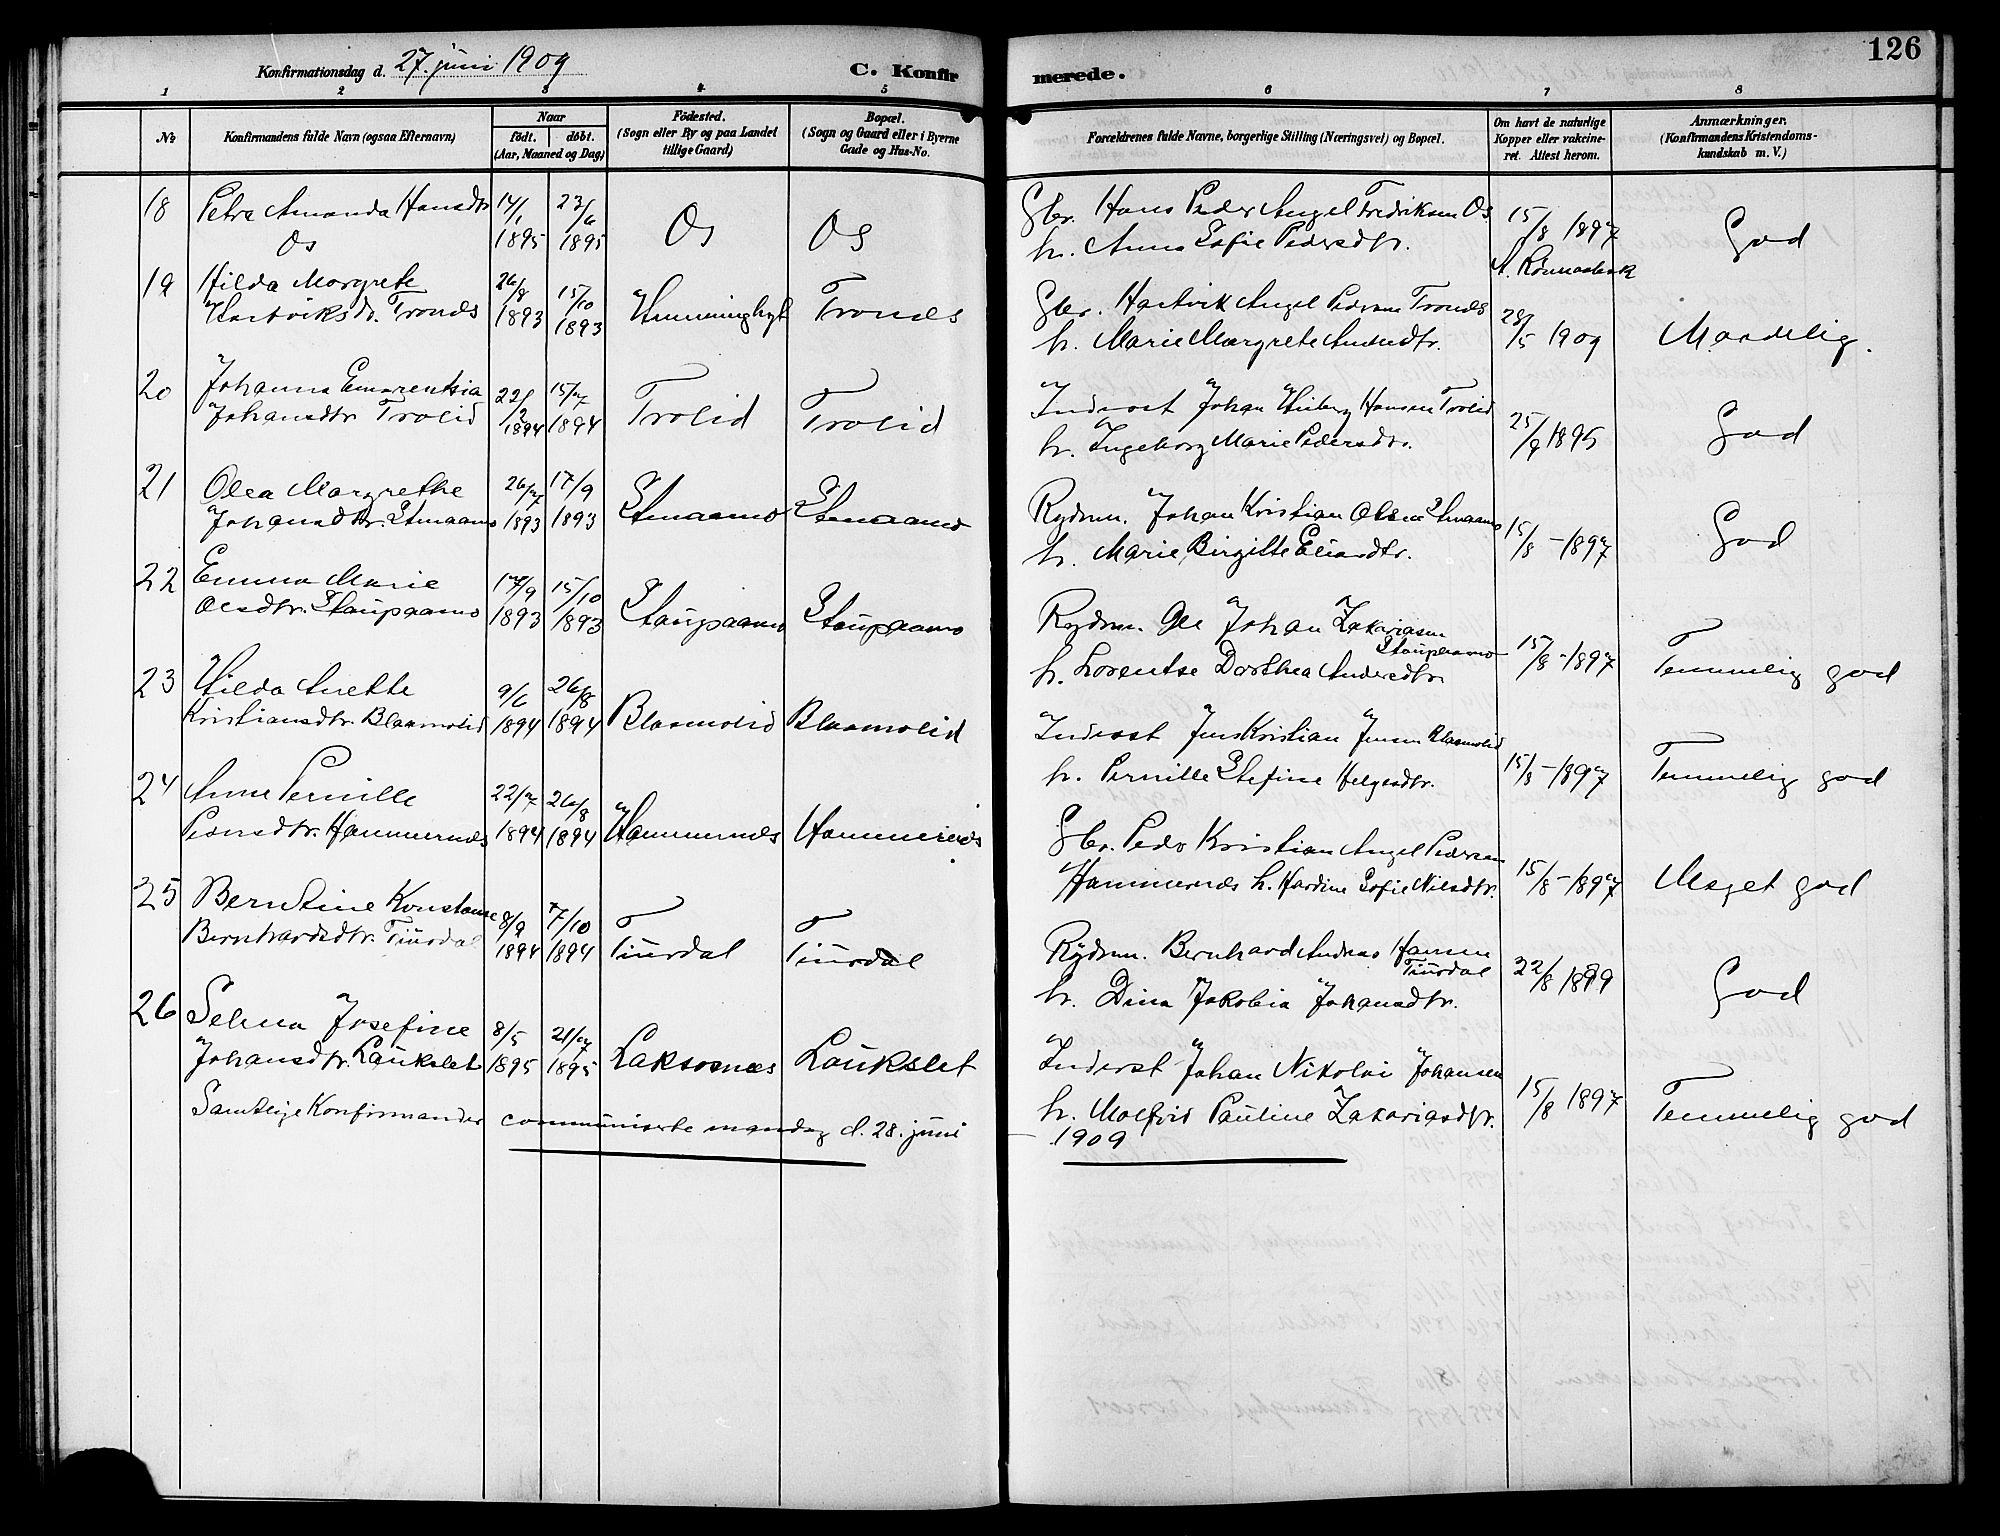 126
Konfirmationsdag d. 27. juni 1909 C. Konfirmerede.
1 2 3 4 5 6 7 8
No. Konfirmandens fulde Navn (ogsaa Efternavn) Naar födt. döbt. (Aar, Maaned og Dag) Födested. (Sogn eller By og paa Landet tillige Gaard) Bopæl. (Sogn og Gaard eller i Byerne Gade og Hus-No. Forældrenes fulde Navne, borgerlige Stilling (Næringsvei) og Bopæl. Om havt de naturlige Kopper eller vakcineret. Attest herom. Anmærkninger. (Konfirmandens Kristendomskundskab m. V.)
18 Petra Amanda Hansdtr 14/1 23/6 Os Os Gbr. Hans Peder Angel Fredriksen Os 15/8 1897 God
Os 1895 1895 h. Anna Sofie Pedersdtr.
19 Hilda Margrete 26/8 15/10 Hemminghyt Trones Gbr. Hartvik Angel Pedersen Trones 28/5 1909 Maadelig.
Hartviksd. Trones 1893 1893 h. Marie Margrete Andersdtr.
20 Johanna Emerentsia 22/2 15/7 Trolid Trolid Inderst Johan Wiberg Hansen Trolid 25/9 1895 God
Johansdtr Trolid 1894 1894 h. Ingeborg Marie Pedersdtr.
21 Olea Margrethe 26/7 17/9 Stmaamo Stmaamo Rydnm. Johan Kristian Olsen Stmaamo 15/8 - 1897 God
Johansdtr. Stmaamo 1893 1893 h. Marie Birgitte Eliasdtr.
22 Emma Marie 17/9 15/10 Staupaamo Staupaamo Rydnm. Ole Johan Zakariasen Staupaamo 15/8 - 1897 Temmelig god
Olsdtr. Staupaamo 1893 1893 h. Lorentse Dorthea Andersdtr
23 Hilda Anette 9/6 26/8 Blaamolid Blaamolid Inderst Jens Kristian Jensen Blaamolid 15/8 - 1897 Temmelig god
Kristiansdtr. Blaamolid 1894 1894 h. Pernille Stefine Helgesdtr.
24 Anne Pernille 22/7 26/8 Hammernes Hammernes Gbr. Peder Kristian Angel Pedersen 15/8 - 1897 Meget god
Pedersdtr. Hammernes 1894 1894 Hammernes h. Hardine Sofie Nilsdtr.
25 Berntine Konstanse 8/9 7/10 Tiurdal Tiurdal Rydnm. Bernhard Andreas Hansen Tiurdal 22/8 1899 God
Bernhardsdtr. Tiurdal 1894 1894 h. Dina Jakobia Johansdtr.
26 Selma Josefine 8/5 21/7 Laksosnes Laukslet Inderst Johan Nikolai Johansen 15/8 1897 Temmelig god
Johansdtr. Laukslet 1895 1895 h. Malfrid Pauline Zakariasdtr.
Samtlige Konfirmander communiserte mandag d. 28. juni 1909